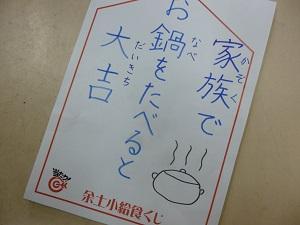 家族で
かぞく
お鍋をたべると
なべ
大吉
だいきち
余土小給食くじ